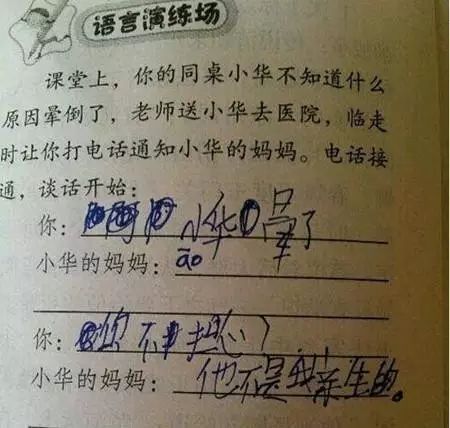 语言演练场
课堂上，你的同桌小华不知道什么
原因晕倒了，老师送小华去医院，临走
时让你打电话通知小华的妈妈。电话接
通，谈话开始：
你：小华晕了
小华的妈妈：āo
你：您不担心？
小华的妈妈：他不是我亲生的。